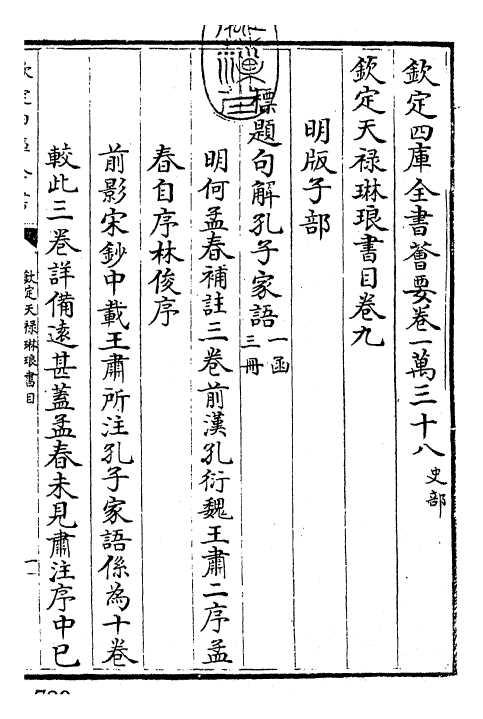 欽定四庫全書薈要卷一萬三十八 史部
欽定天祿琳琅書目卷九
明版子部
標題句解孔子家語 一函三冊
明何孟春補註三卷前漢孔衍魏王肅二序孟
春自序林俊序
前影宋鈔中載王肅所注孔子家語係為十卷
較此三卷詳備遠甚蓋孟春未見肅注序中已
欽定天祿琳琅書目
一